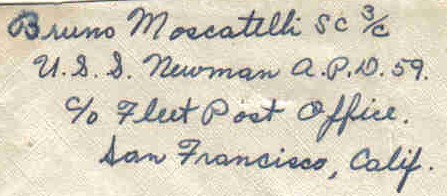 Bruno Moscatelli SC 3/c
U.S.S. Newman A.P.D. 59.
c/o Fleet Post Office.
San Francisco, Calif.